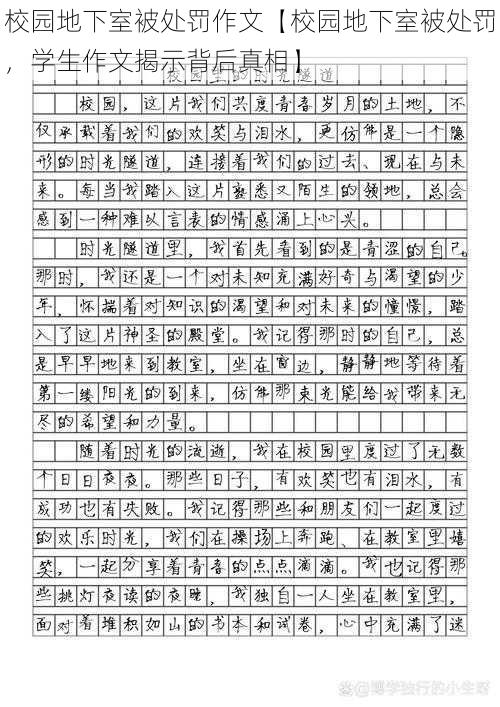 校园地下室被处罚作文【校园地下室被处罚
，学生作文揭示背后真相】
校园里的时光隧道
校园，这片我们共度青春岁月的土地，不
仅承载着我们的欢笑与泪水，更仿佛是一个隐
形的时光隧道，连接着我们的过去、现在与未
来。每当我踏入这片熟悉又陌生的领地，总会
感到一种难以言表的情感涌上心头。
时光隧道里，我首先看到的是青涩的自己。
那时，我还是一个对未知充满好奇与渴望的少
年，怀揣着对知识的渴望和对未来的憧憬，踏
入了这片神圣的殿堂。我记得那时的自己，总
是早早地来到教室，坐在窗边，静静地等待着
第一缕阳光的到来，仿佛那束光能给我带来无
尽的希望和力量。
随着时光的流逝，我在校园里度过了无数
个日日夜夜。那些日子，有欢笑也有泪水，有
成功也有失败。我记得那些和朋友们一起度过
的欢乐时光，我们在操场上奔跑、在教室里嬉
笑，一起分享着青春的点点滴滴。我也记得那
些挑灯夜读的夜晚，我独自一人坐在教室里，
面对着堆积如山的书本和试卷，心中充满了迷
@博学独行的小生呀